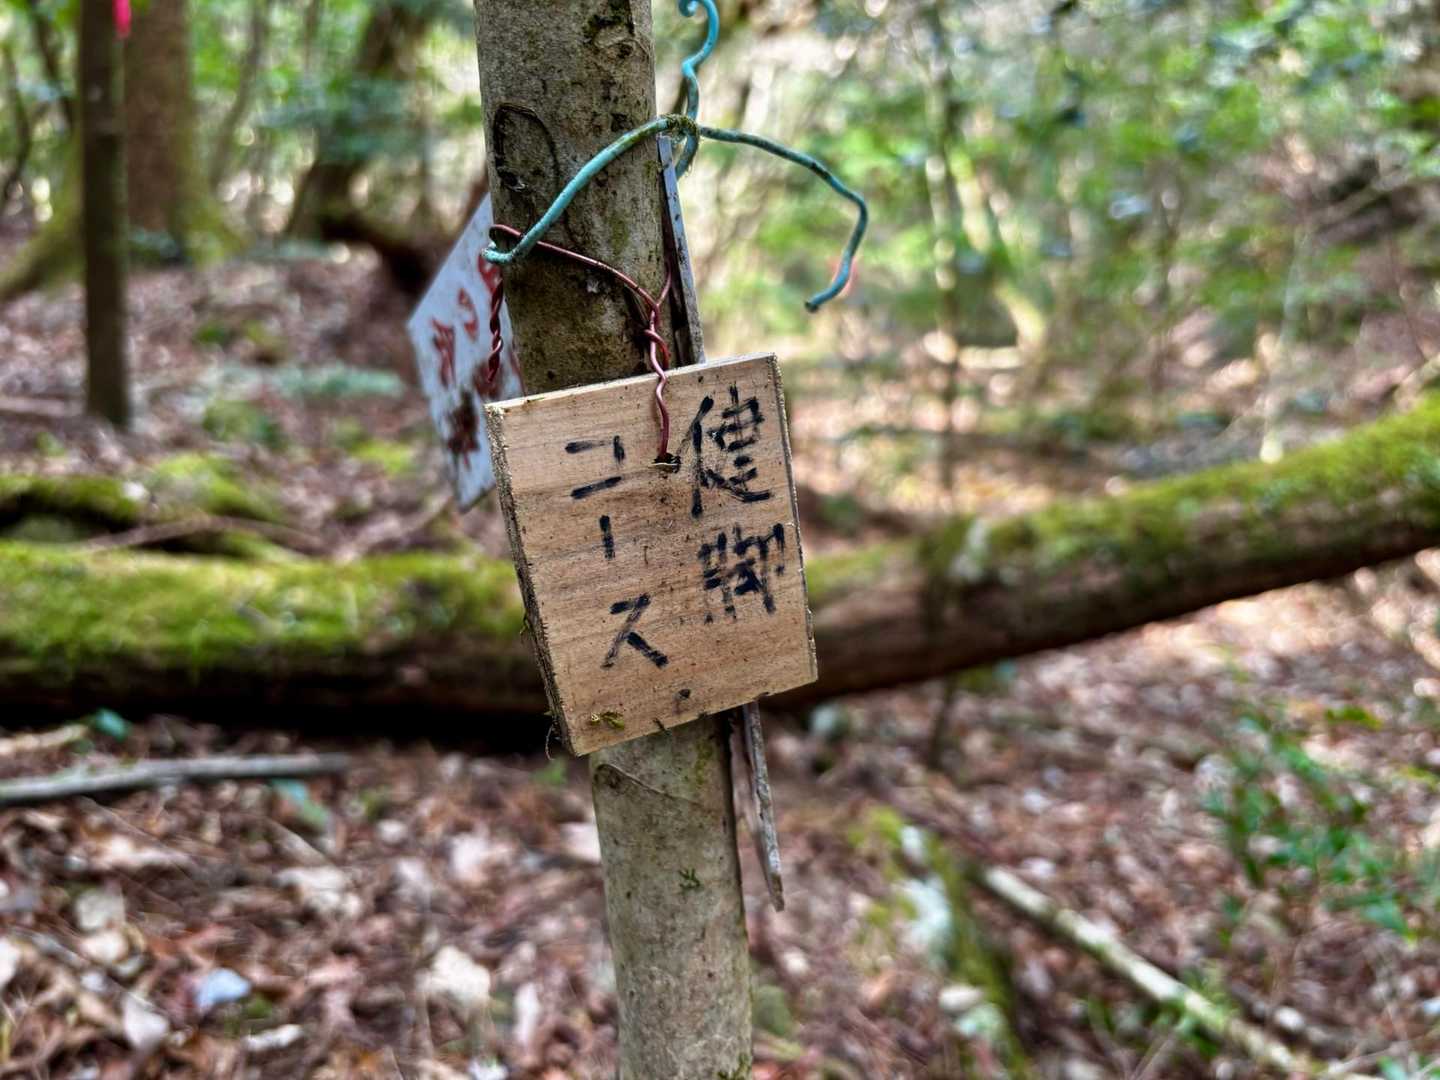 健脚
コース